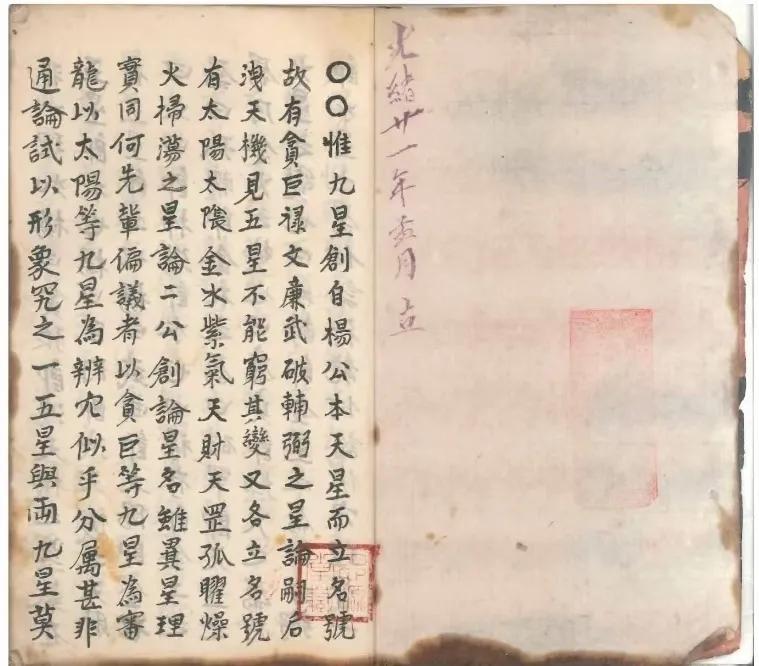 光緒廿一年 月立
〇〇惟九星創自楊公本天星而立名號
故有貪巨禄文廉武破輔弼之星論嗣后
洩天機見五星不能窮其變又各立名號
有太陽太陰金水紫氣天財天罡孤曜燥
火掃蕩之星論二公創論星名雖異星理
實同何先輩偏議者以貪巨等九星為審
龍以太陽等九星為辨穴似乎分属甚非
通論試以形象究之一五星與両九星莫